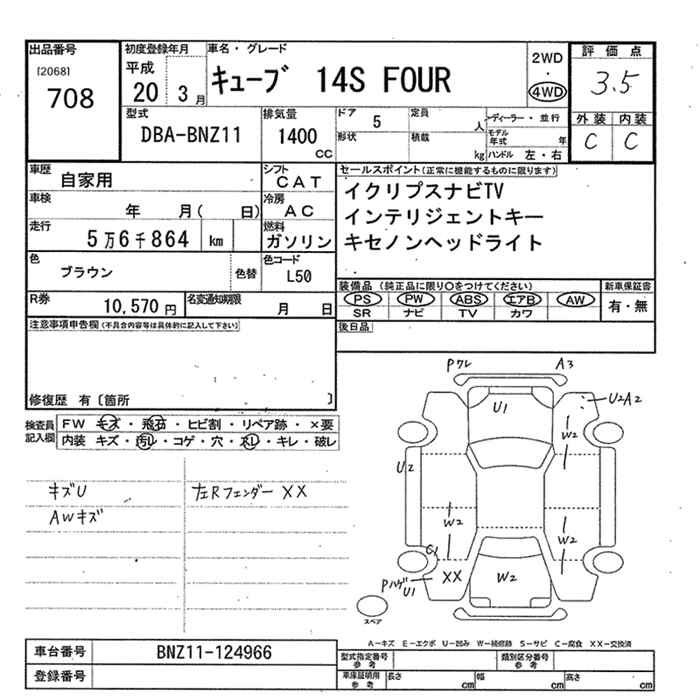 出品番号
[2068]
708
初度登録年月
平成
20 3月
車名・グレード
キューブ 14S FOUR
2WD
・
4WD
評価点
3.5
外装 内装
C C
型式
DBA-BNZ11
排気量
1400
cc
ドア
5
形状
定員
人
積載
kg
ディーラー・並行
モデル年式 年
ハンドル 左・右
車歴
自家用
シフト
CAT
車検
年 月( 日)
冷房
AC
走行
5万6千864 km
燃料
ガソリン
色
ブラウン
色替
色コード
L50
R券
10,570円
名変通知期限
月 日
セールスポイント(正常に機能するものに限ります)
イクリプスナビTV
インテリジェントキー
キセノンヘッドライト
装備品 (純正品に限り○をつけてください)
PS PW ABS エアB AW
SR ナビ TV カワ
新車保証書
有・無
後日品
注意事項申告欄(不具合内容等は具体的に記入して下さい)
修復歴 有〔箇所 〕
検査員記入欄
FW キズ・飛石・ヒビ割・リペア跡・×要
内装 キズ・汚レ・コゲ・穴・スレ・キレ・破レ
キズU
AWキズ
左Rフェンダー XX
Pワレ A3
U1
U2A2
W2
U2
W2
W2
C1
XX
W2
PハゲU1
スペア
A-キズ E-エクボ U-凹み W-補修跡 S-サビ C-腐食 XX-交換済
車台番号
BNZ11-124966
登録番号
型式指定番号
参考
類別区分番号
参考
車庫証明用
参考
長さ cm
幅 cm
高さ cm